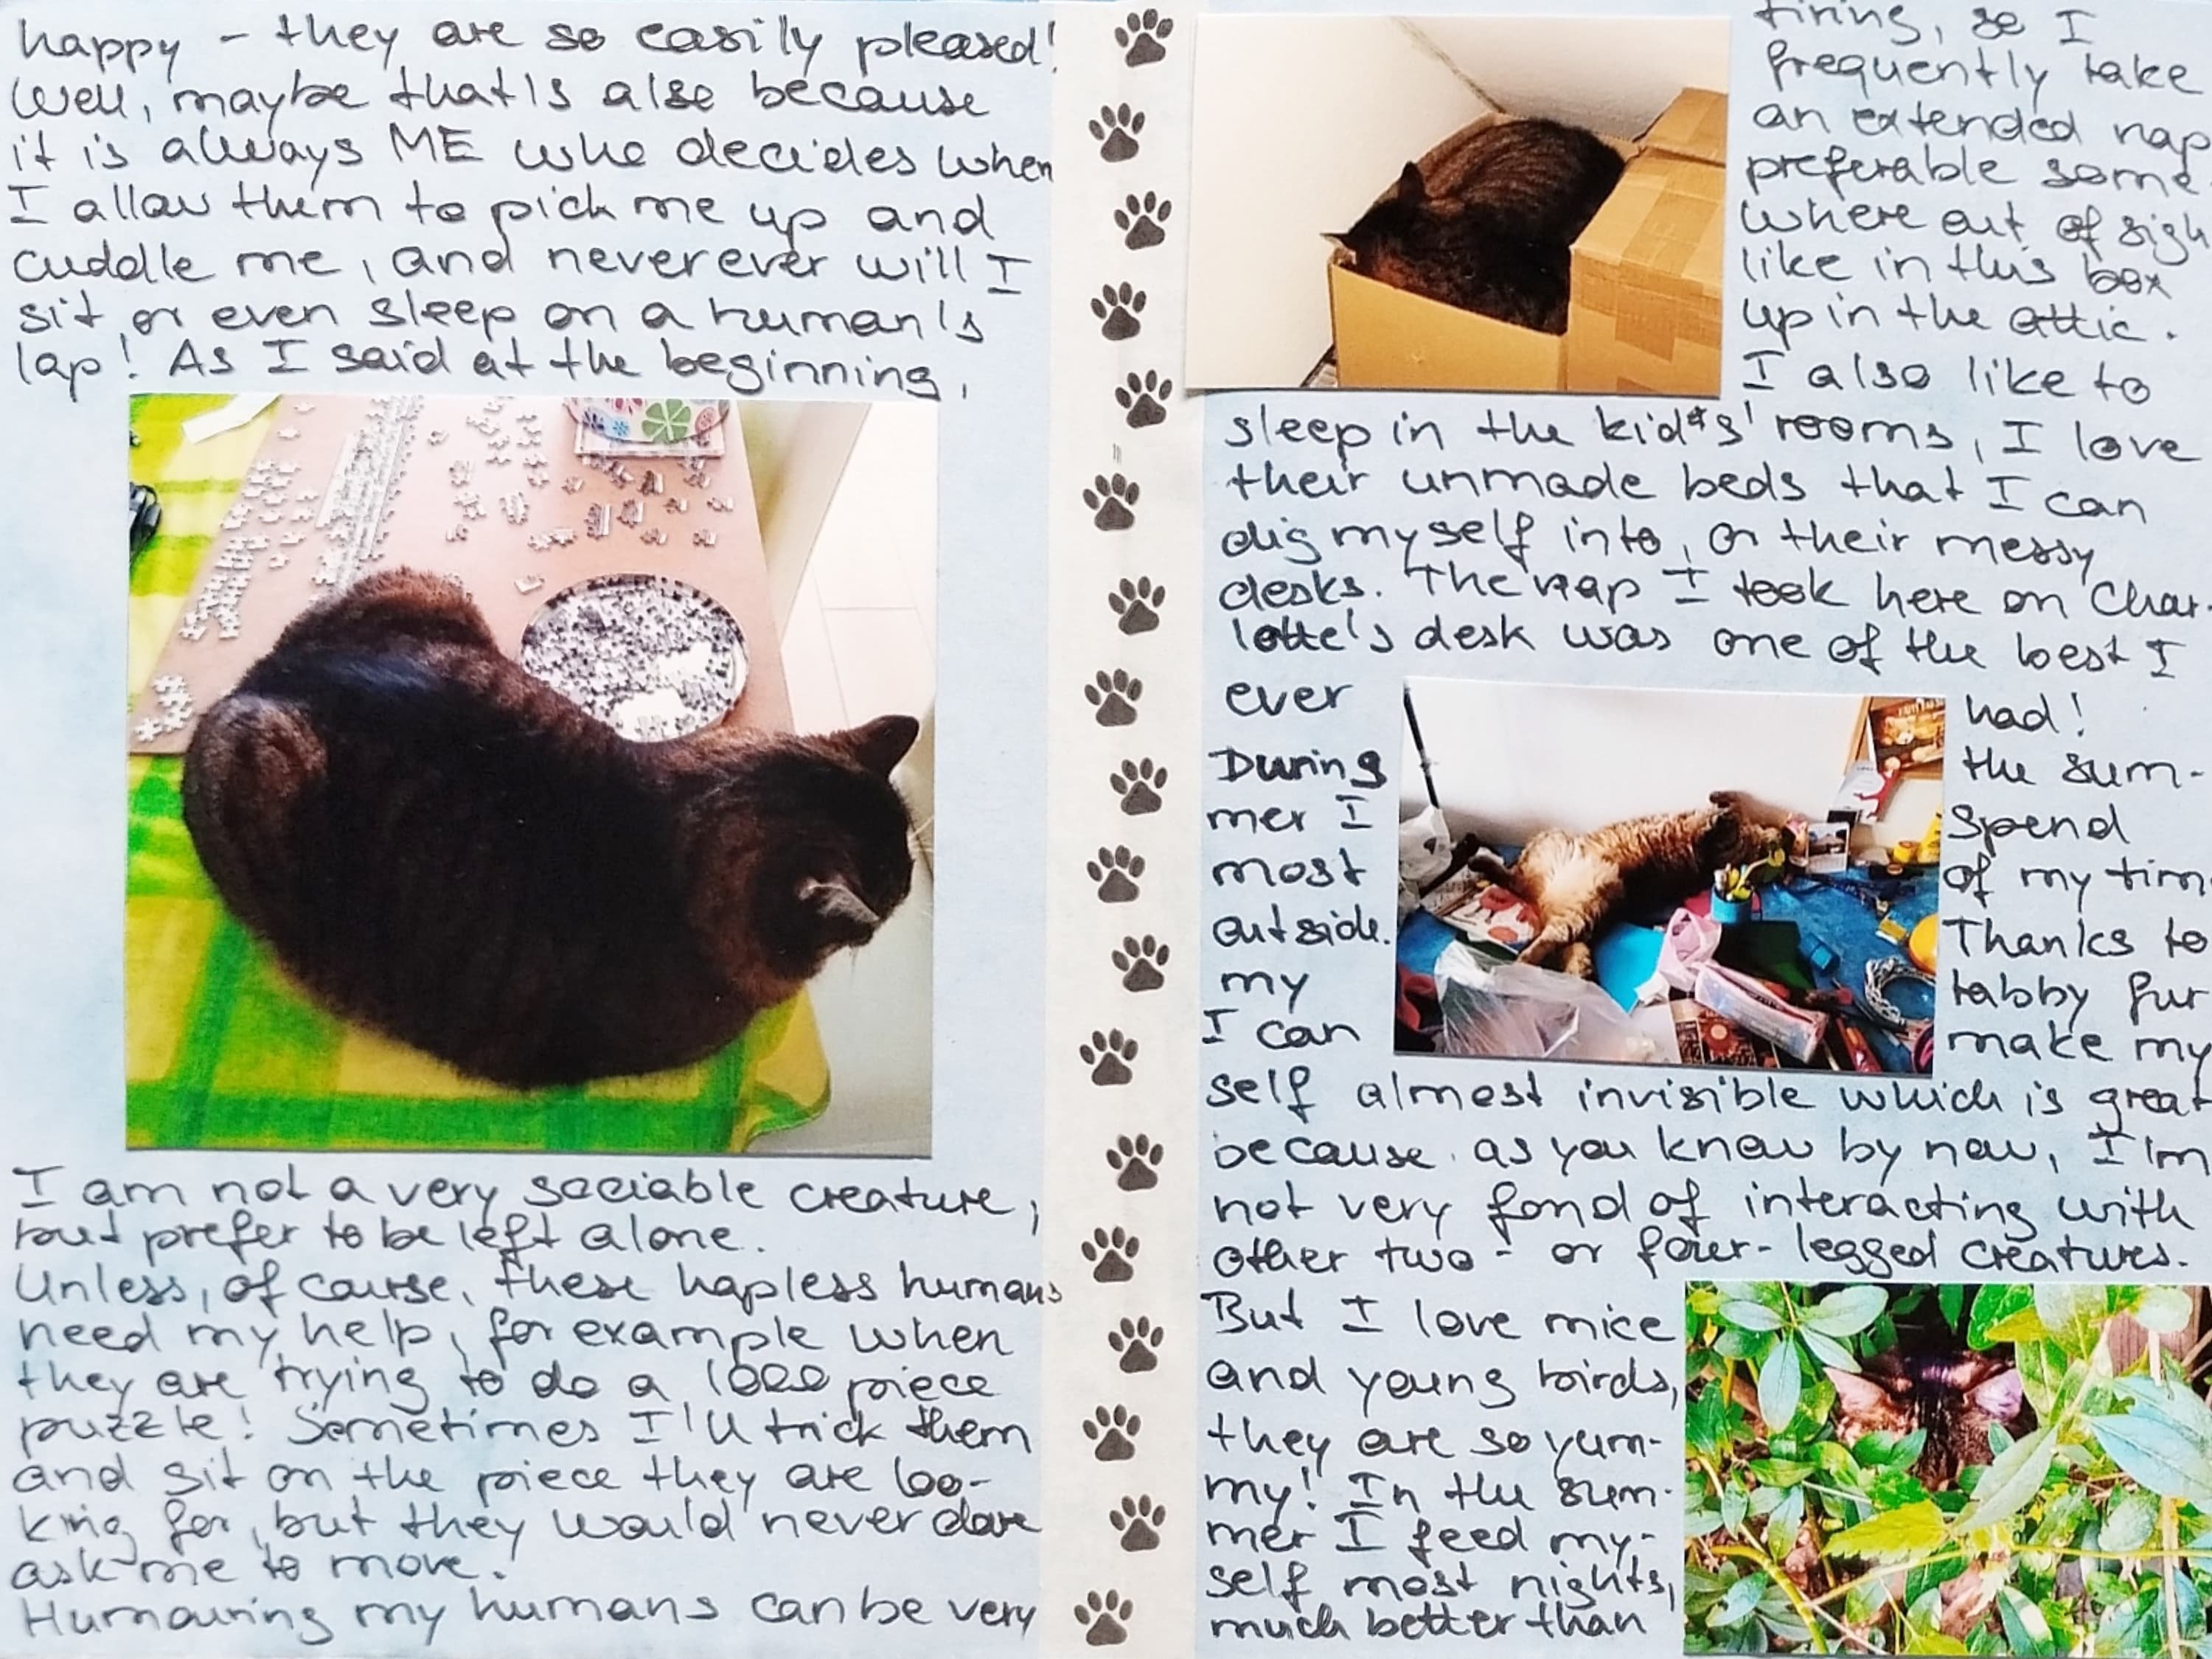 happy - they are so easily pleased!
Well, maybe that's also because
it is always ME who decides when
I allow them to pick me up and
cuddle me, and never ever will I
sit or even sleep on a human's
lap! As I said at the beginning,
I am not a very sociable creature,
but prefer to be left alone.
Unless, of course, these hapless humans
need my help, for example when
they are trying to do a 1000 piece
puzzle! Sometimes I'll trick them
and sit on the piece they are loo-
king for, but they would never dare
ask me to move.
Humouring my humans can be very
tiring, so I
frequently take
an extended nap
preferable some
where out of sigh
like in this box
up in the attic.
I also like to
sleep in the kids' rooms, I love
their unmade beds that I can
dig myself into, or their messy
desks. The nap I took here on Char-
lotte's desk was one of the best I
ever had!
During the sum-
mer I spend
most of my tim
outside. Thanks to
my tabby fur
I can make my
self almost invisible which is great
because as you know by now, I'm
not very fond of interacting with
other two- or four-legged creatures.
But I love mice
and young birds,
they are so yum-
my! In the sum-
mer I feed my-
self most nights,
much better than